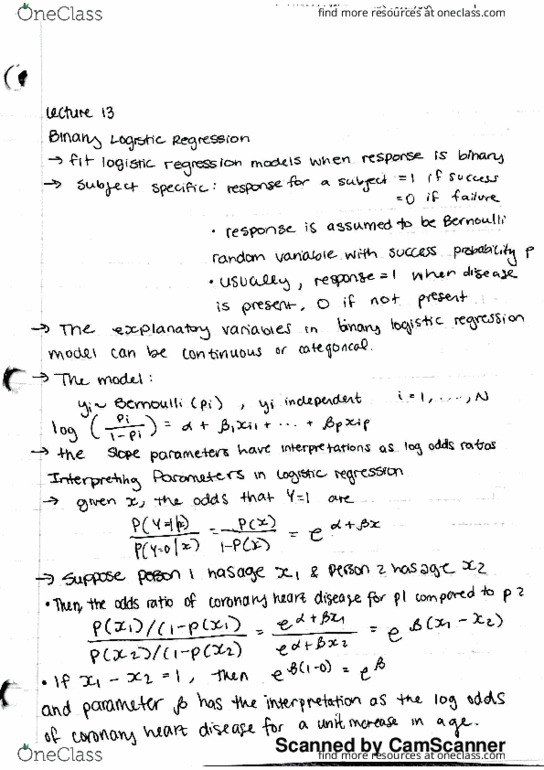 OneClass
find more resources at oneclass.com
Lecture 13
Binary Logistic Regression
→ fit logistic regression models when response is binary
→ subject specific: response for a subject = 1 if success
= 0 if failure
• response is assumed to be Bernoulli
random variable with success probability p
• usually, response = 1 when disease
is present, 0 if not present
→ The explanatory variables in binary logistic regression
model can be continuous or categorical.
→ The model:
yi ~ Bernoulli (pi) , yi independent i = 1, ..., N
log (pi / 1-pi) = α + β1xi1 + ... + βpxip
→ the slope parameters have interpretations as log odds ratios
Interpreting Parameters in Logistic regression
→ given x, the odds that Y=1 are
P(Y=1|x) / P(Y=0|x) = P(x) / 1-P(x) = e^α+βx
→ Suppose person 1 has age x1 & person 2 has age x2
• Then, the odds ratio of coronary heart disease for p1 compared to p2
P(x1)/(1-p(x1)) / P(x2)/(1-p(x2)) = e^α+βx1 / e^α+βx2 = e^β(x1-x2)
• If x1 - x2 = 1, then e^β(1-0) = e^β
and parameter β has the interpretation as the log odds
of coronary heart disease for a unit increase in age.
Scanned by CamScanner
OneClass
find more resources at oneclass.com